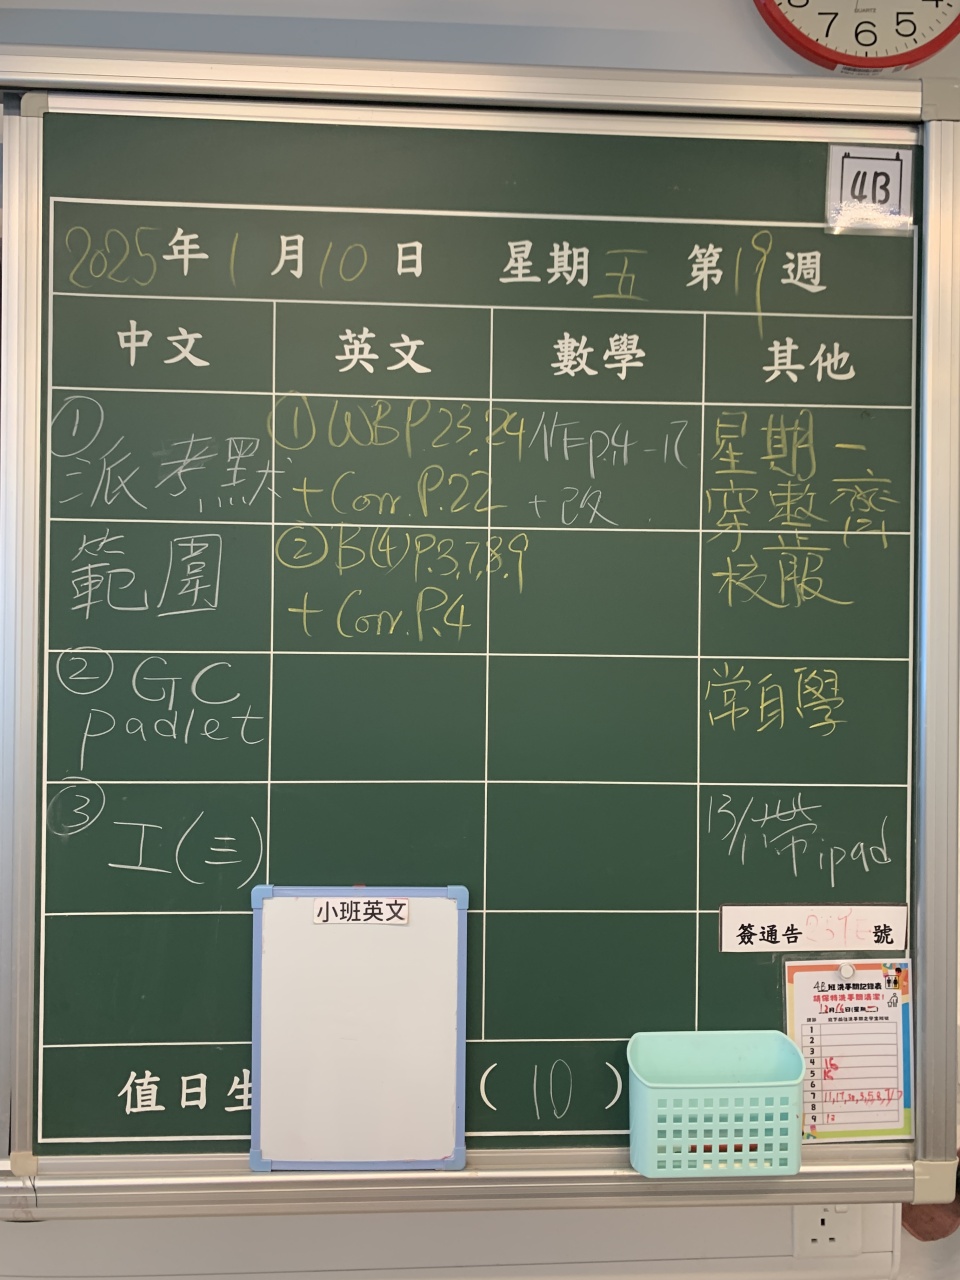 7 6 5
QUARTZ
4B
2025年1月10日 星期五 第19週
中文
英文
數學
其他
①
派考默
範圍
② GC
padlet
③
工(三)
① WB P.23,24
+ Corr. P.22
② B(4) P.3,7,8,9
+ Corr. P.4
作F p.4-17
+改
星期一
穿整齊
校服
常自學
13/1帶ipad
小班英文
簽通告 號
4B班洗手間記錄表
請保持洗手間清潔!
12月16日(星期一)
1
2
3
4 15
5 15
6
7
8
9 12
值日生
(10)